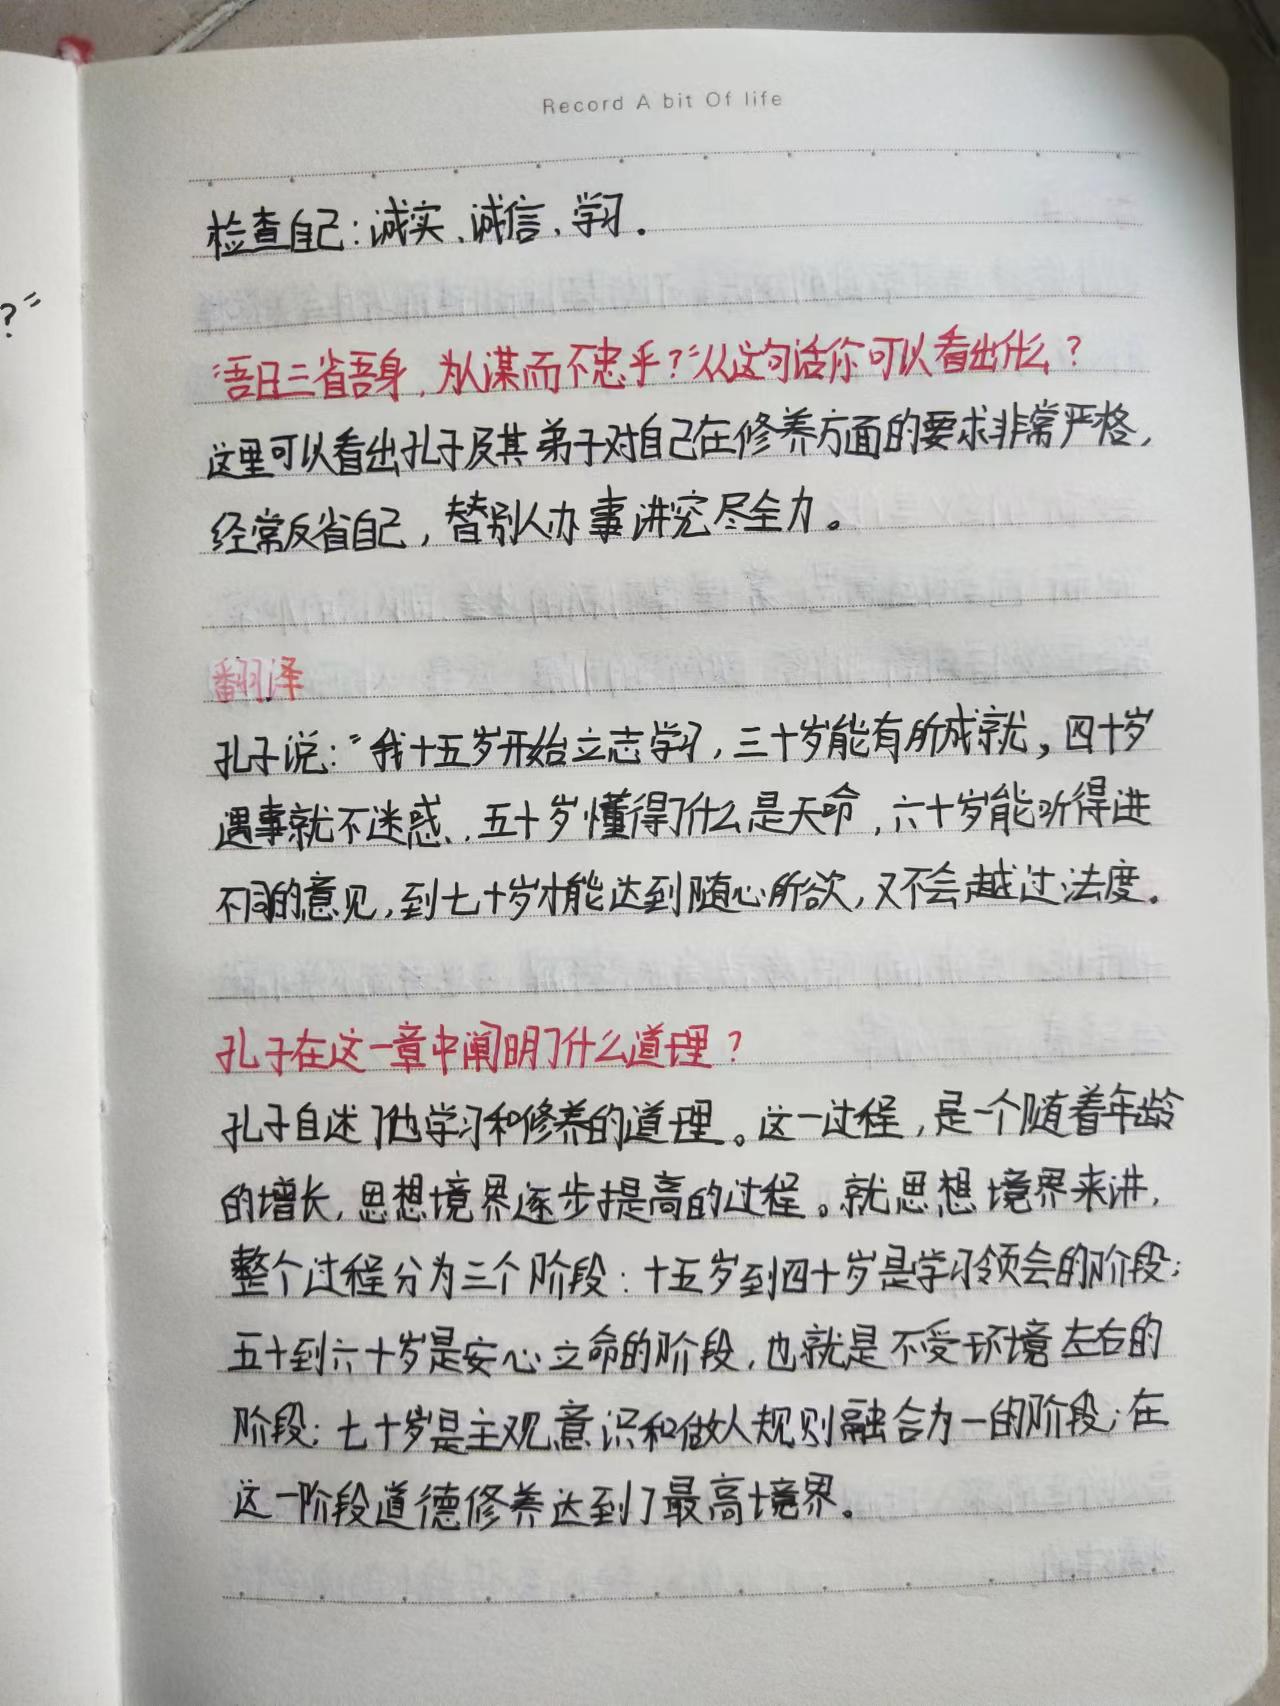 Record A bit Of life
检查自己：诚实、诚信、学习.
?”
“吾日三省吾身，为人谋而不忠乎？”从这句话你可以看出什么？
这里可以看出孔子及其弟子对自己在修养方面的要求非常严格，
经常反省自己，替别人办事讲究尽全力。
翻译
孔子说：“我十五岁开始立志学习，三十岁能有所成就，四十岁
遇事就不迷惑、，五十岁懂得了什么是天命，六十岁能听得进
不同的意见，到七十岁才能达到随心所欲，又不会越过法度.
孔子在这一章中阐明了什么道理？
孔子自述了他学习和修养的道理。这一过程，是一个随着年龄
的增长，思想境界逐步提高的过程。就思想境界来讲，
整个过程分为三个阶段：十五岁到四十岁是学习领会的阶段；
五十到六十岁是安心立命的阶段，也就是不受环境左右的
阶段；七十岁是主观意识和做人规则融合为一的阶段；在
这一阶段道德修养达到了最高境界。